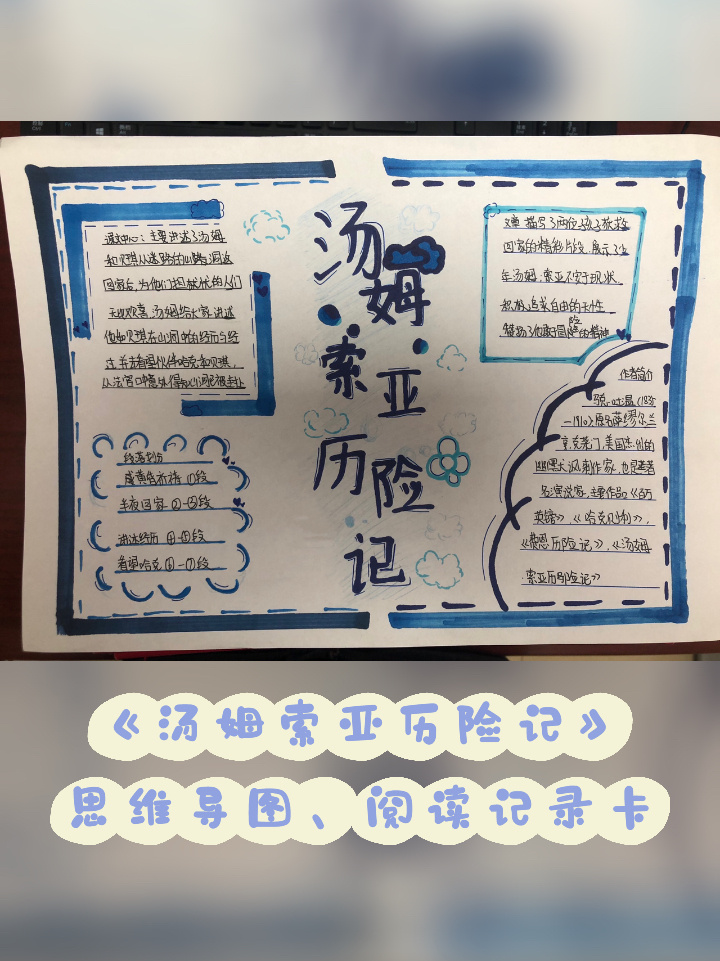 汤姆·索亚历险记
课文中心:主要讲述了汤姆
和贝琪从迷路的山洞返
回家后,为他们担
的人们
无比欢喜,汤姆给大家讲述
他和贝琪在山洞中的经历与经
过,并去看望伙伴哈克和贝琪,
从法官口中意外得知山洞已被封
线索划分
段
半夜回家 ②-③段
④-⑤段
看望哈克 ⑥-⑦段
文章描写了两位孩子获救
回家的精彩片段,展示了少
年汤姆·索亚不安于现状、
积极追求自由的天性
赞扬了他敢于冒险的精神
作者简介
马克·吐温(1835
—1910)原名萨缪尔·兰
亨·克莱门,美国
的
幽默大
讽刺作家,也是著名
演说家,主要作品:《百万
英镑》,《哈克贝利》,
《费恩历险记》,《汤姆
索亚历险记》
《汤姆索亚历险记》
思维导图、阅读记录卡